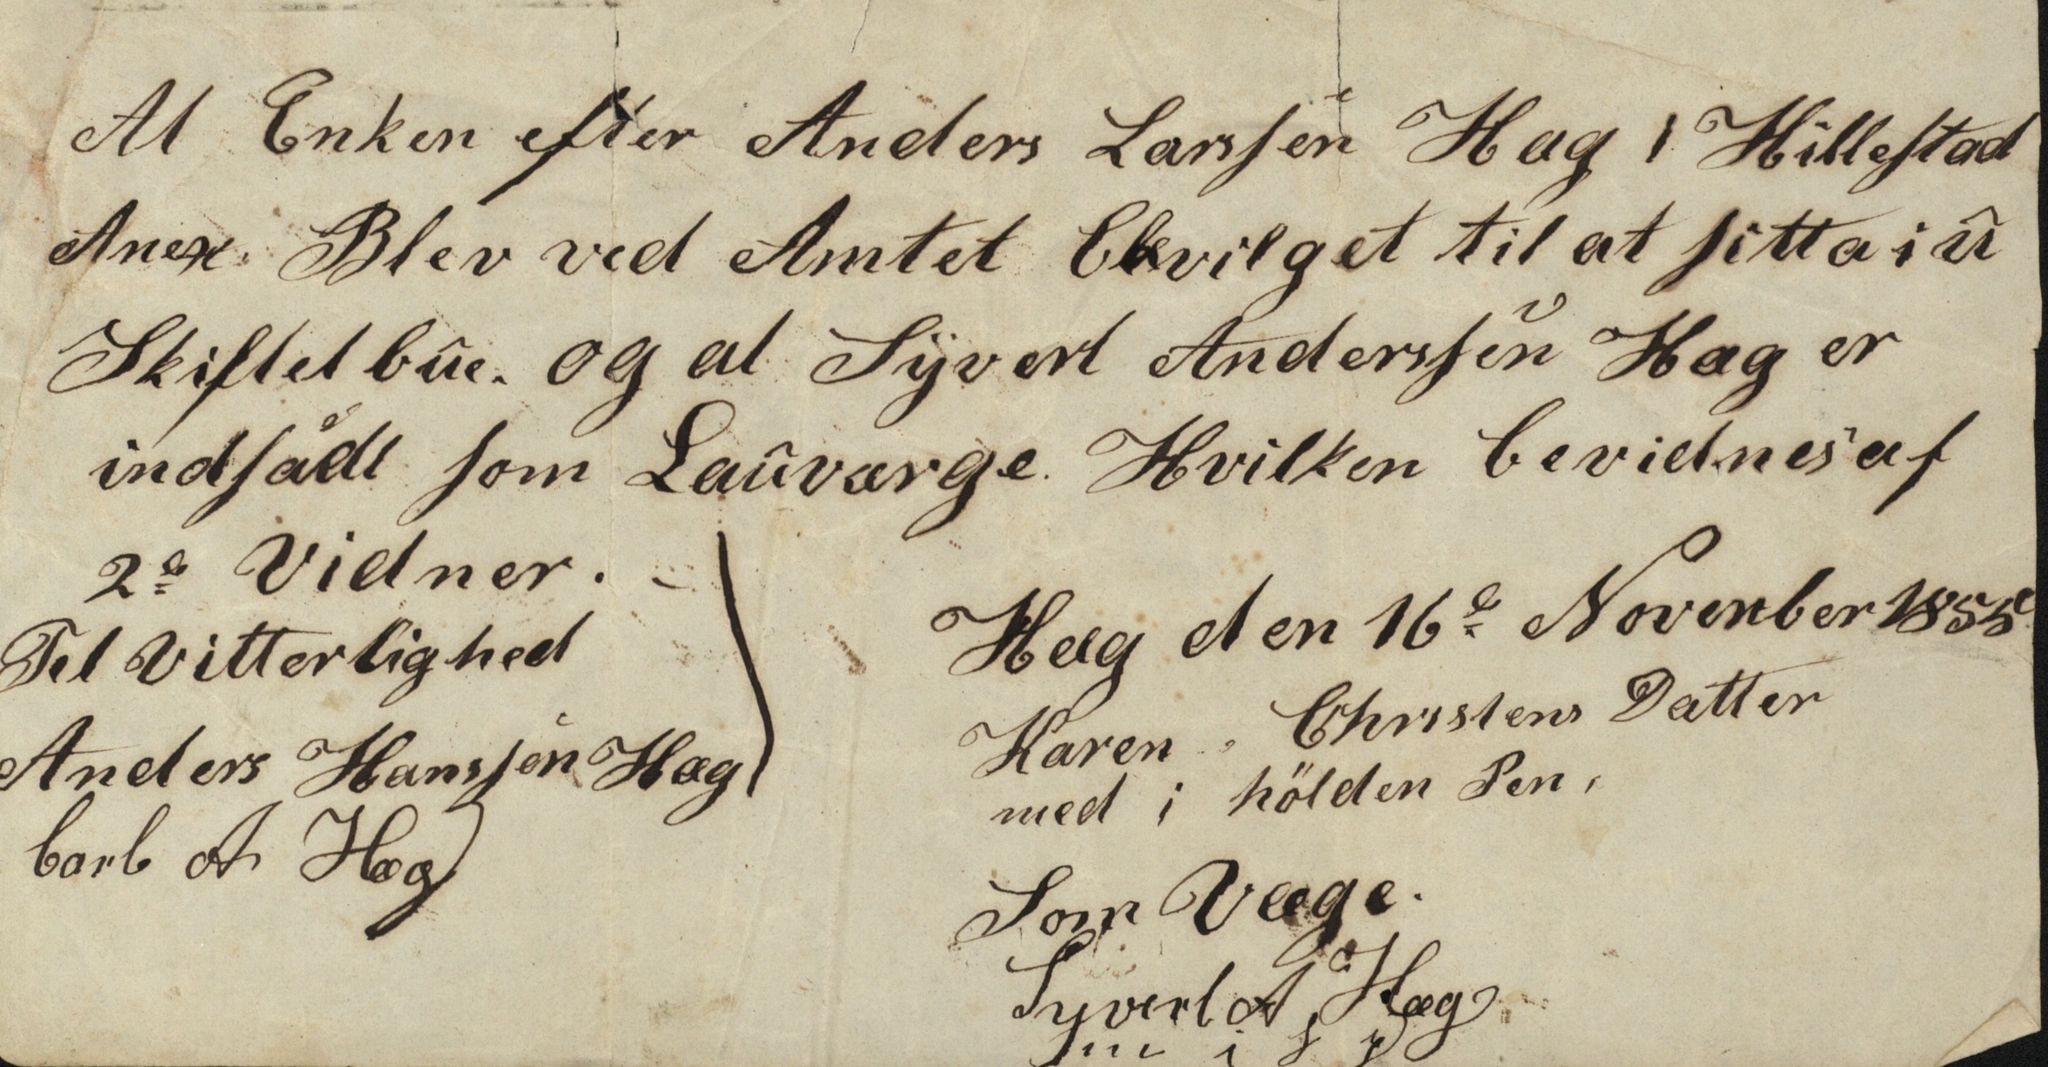 At Enken efter Anders Larssen Hag i Hillestad
Anex. Blev ved Amtet Bevilget til at sitta i ü
Skiftet büe. og at Syvert Anderssen Hag er
indsadt som Lauværge. Hvilken bevidnes af
2de Vidner.
Til Vitterlighed
Anders Hanssen Hag
barb A Hag
Hag den 16de November 1855
Karen Christens Datter
med i hölden Pen,
Som Væge.
Syvert A Hag